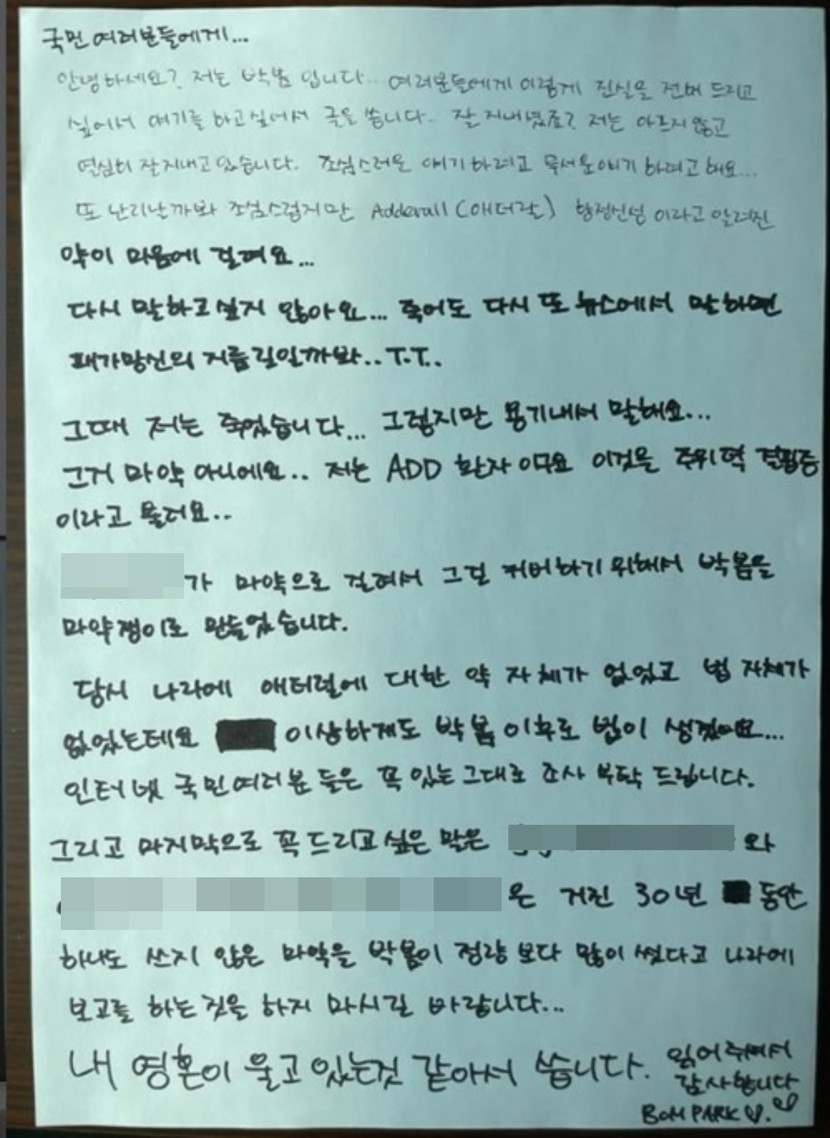 국민 여러분들에게...
안녕하세요? 저는 박봄 입니다.. 여러분들에게 이렇게 진실을 전해 드리고
싶어서 얘기를 하고싶어서 글을 씁니다.. 잘 지내셨죠? 저는 아프지 않고
열심히 잘 지내고 있습니다. 조심스러운 얘기 하려고 무서운얘기 하려고 해요...
또 난리날까봐 조심스럽지만 Adderall (애더랄) 향정신성 이라고 알려진
약이 마음에 걸려요...
다시 말하고싶지 않아요... 죽어도 다시 또 뉴스에서 말하면
패가망신의 지름길일까봐..T.T..
그때 저는 죽었습니다... 그렇지만 용기내서 말해요...
그거 마약 아니에요.. 저는 ADD 환자이구요 이것을 주위력 결핍증
이라고 불러요..
가 마약으로 걸려서 그걸 커버하기 위해서 박봄을
마약쟁이로 만들었습니다.
당시 나라에 애터럴에 대한 약 자체가 없었고 법 자체가
없었는데요 이상하게도 박봄 이후로 법이 생겼어요...
인터넷 국민여러분 들은 꼭 있는그대로 조사 부탁 드립니다.
그리고 마지막으로 꼭 드리고 싶은 말은 와
은 거진 30년 동안
하나도 쓰지 않은 마약을 박봄이 정량 보다 많이 썼다고 나라에
보고를 하는것을 하지 마시길 바랍니다...
내 영혼이 울고 있는것 같아서 씁니다. 읽어주셔서
감사합니다
BOM PARK ♡.